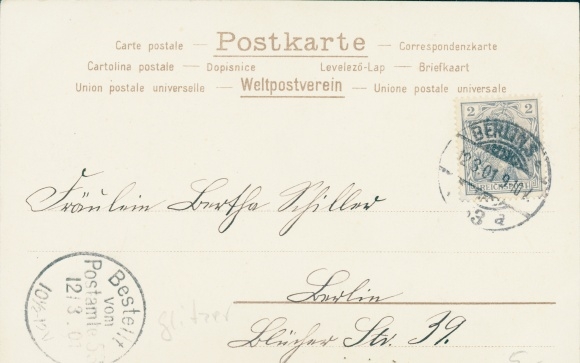 Carte postale — Postkarte — Correspondenzkarte
Cartolina postale — Dopisnice Levelező-Lap — Briefkaart
Union postale universelle — Weltpostverein — Unione postale universale
2 2
REICHSPOST
BERLIN S
12.3.01. 9-10V
53 a
Fräulein Bertha Schiller
Bestellt
vom
Postamte
12/3.01
Glitzer
Berlin
Blücher Str. 39.